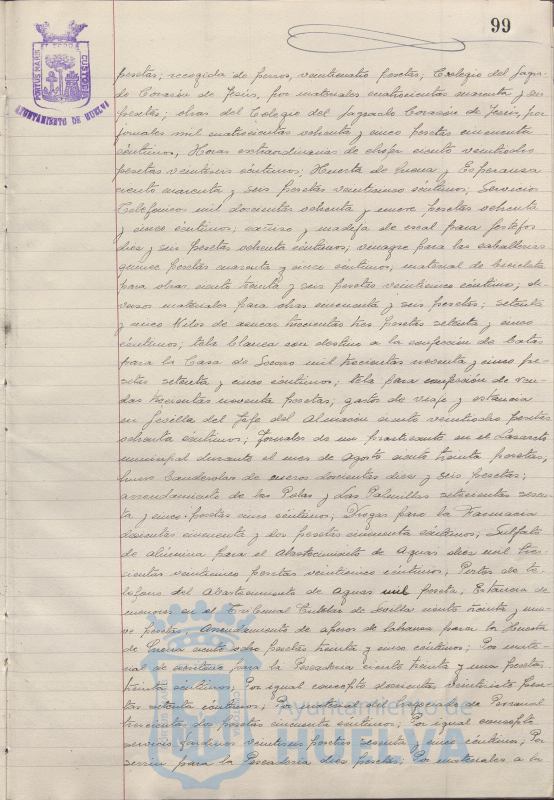 99
PORTUS MARIS ET TERRAE CUSTODIA
AYUNTAMIENTO DE HUELVA
pesetas; recogida de perros, veinticuatro pesetas; Colegio del Sagra-
do Corazón de Jesús, por materiales cuatrocientas cuarenta y seis
pesetas; obras del Colegio del Sagrado Corazón de Jesús, por
jornales mil cuatrocientas ochenta y cinco pesetas cincuenta
céntimos, Horas extraordinarias de chofer ciento veintiocho
pesetas veintiseis céntimos; Huerta de Mena y Esperanza
ciento cuarenta y seis pesetas veinticinco céntimos; Servicios
Telefónicos mil doscientas ochenta y nueve pesetas ochenta
y cinco céntimos; y madeja de coral para festejos
diez y seis pesetas ochenta céntimos; vinagre para las caballerías
quince pesetas cuarenta y cinco céntimos; material de bicicleta
para obras ciento treinta y seis pesetas veinticinco céntimos; di-
versos materiales para obras cincuenta y seis pesetas; setenta
y cinco kilos de azucar trescientas tres pesetas setenta y cinco
céntimos; tela blanca con destino a la confección de batas
para la Casa de Socorro mil trescientas noventa y cinco pe-
setas setenta y cinco céntimos; tela para confección de ven-
das trescientas noventa pesetas; gastos de viaje y estancia
en Sevilla del Jefe del Almacén ciento veintiocho pesetas
ochenta céntimos; Jornales de un practicante en el Lazareto
municipal durante el mes de Agosto ciento treinta pesetas,
nueve bandoleras de cueros doscientas diez y seis pesetas;
arrendamiento de las Polas y Las Palmillas setecientas sesen-
ta y cinco pesetas cinco céntimos; Drogas para la Farmacia
doscientas cincuenta y dos pesetas cincuenta céntimos; Sulfato
de alúmina para el Abastecimiento de Aguas diez mil tres-
cientas veinticinco pesetas veinticinco céntimos; Postes de te-
léfono del Abastecimiento de Aguas mil peseta; Estancia de
menores en el Tribunal Tutelar de Sevilla ciento treinta y nue-
ve pesetas, Arrendamiento de aperos de labranza para la Huerta
de Mena ciento ocho pesetas treinta y cinco céntimos; Por mate-
rial de escritorio para la Pescadería ciento treinta y una pesetas
treinta céntimos; Por igual concepto doscientas veintisiete pese-
tas setenta céntimos; Por material del Negociado de Personal
trescientas dos pesetas cincuenta céntimos; Por igual concepto
servicio Jardines veintiseis pesetas sesenta y cinco céntimos; Por
serrín para la Pescadería diez pesetas; Por materiales a la
Ayuntamiento de
HUELVA